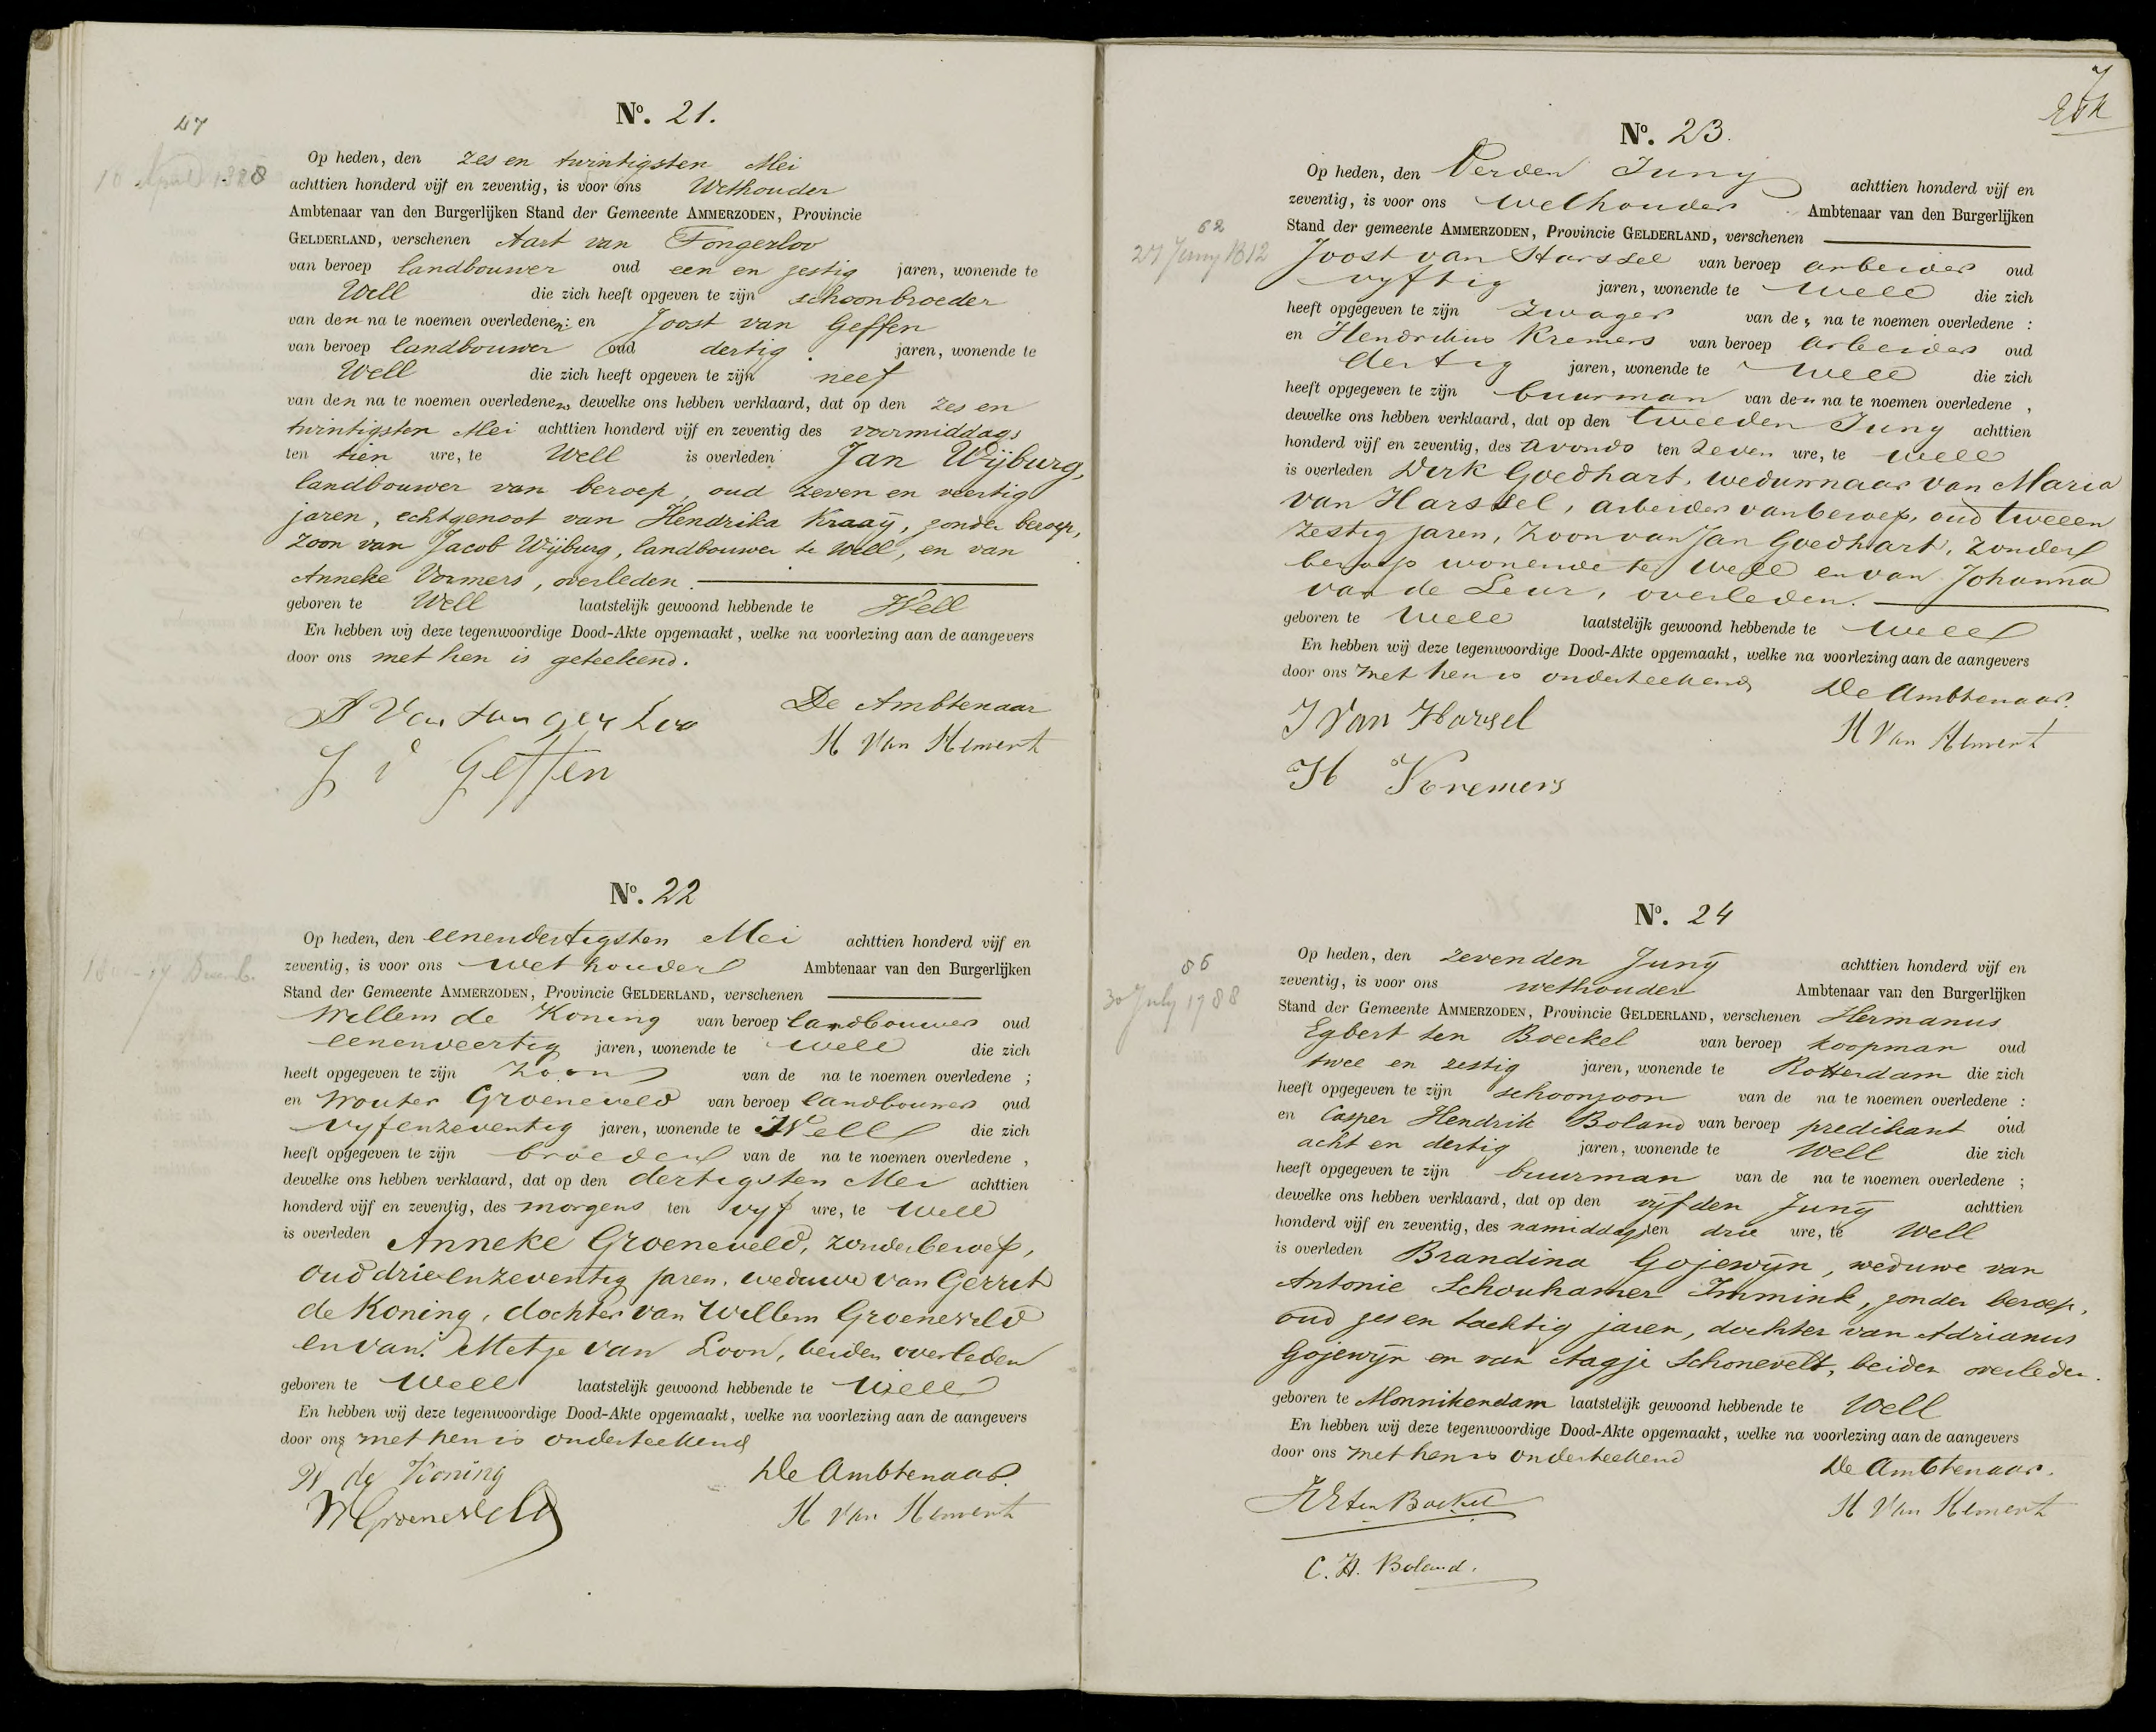 47
10 April 1828
No. 21.
Op heden, den zes en twintigsten Mei
achttien honderd vijf en zeventig, is voor ons Wethouder
Ambtenaar van den Burgerlijken Stand der Gemeente AMMERZODEN, Provincie
GELDERLAND, verschenen Aart van Tongerloo
van beroep landbouwer oud een en zestig jaren, wonende te
Well die zich heeft opgeven te zijn schoonbroeder
van den na te noemen overledenen: en Joost van Geffen
van beroep landbouwer oud dertig jaren, wonende te
Well die zich heeft opgeven te zijn neef
van den na te noemen overledenen, dewelke ons hebben verklaard, dat op den zes en
twintigsten Mei achttien honderd vijf en zeventig des voormiddags
ten tien ure, te Well is overleden Jan Wijburg,
landbouwer van beroep, oud zeven en veertig
jaren, echtgenoot van Hendrika Kraaij, zonder beroep,
zoon van Jacob Wijburg, landbouwer te Well, en van
Anneke Vormers, overleden.
geboren te Well laatstelijk gewoond hebbende te Well
En hebben wij deze tegenwoordige Dood-Akte opgemaakt, welke na voorlezing aan de aangevers
door ons met hen is geteekend.
A Van tongerLoo De Ambtenaar
J v Geffen H Van Hemert
No. 22
Op heden, den eenendertigsten Mei achttien honderd vijf en
zeventig, is voor ons wethouder Ambtenaar van den Burgerlijken
Stand der Gemeente AMMERZODEN, Provincie GELDERLAND, verschenen
Willem de Koning van beroep landbouwer oud
eenenveertig jaren, wonende te Well die zich
heeft opgegeven te zijn zoon van de na te noemen overledene ;
en Wouter Groeneveld van beroep landbouwer oud
vyfenzeventig jaren, wonende te Well die zich
heeft opgegeven te zijn broeder van de na te noemen overledene ,
dewelke ons hebben verklaard, dat op den dertigsten Mei achttien
honderd vijf en zeventig, des morgens ten vyf ure, te Well
is overleden Anneke Groeneveld, zonder beroep,
oud drieenzeventig jaren, weduwe van Gerrit
de Koning, dochter van Willem Groeneveld
en van Metje van Loon, beiden overleden
geboren te Well laatstelijk gewoond hebbende te Well
En hebben wij deze tegenwoordige Dood-Akte opgemaakt, welke na voorlezing aan de aangevers
door ons met hen is onderteekend
W de Koning De Ambtenaar.
W Groeneveld H Van Hemert
7
No. 23.
Op heden, den Derden Juny achttien honderd vijf en
zeventig, is voor ons wethouder Ambtenaar van den Burgerlijken
62
27 Juny 1812
Stand der gemeente AMMERZODEN, Provincie GELDERLAND, verschenen
Joost van Harssel van beroep arbeider oud
vyftig jaren, wonende te Well die zich
heeft opgegeven te zijn zwager van de na te noemen overledene :
en Hendrikus Kremers van beroep arbeider oud
dertig jaren, wonende te Well die zich
heeft opgegeven te zijn buurman van den na te noemen overledene ,
dewelke ons hebben verklaard, dat op den tweeden Juny achttien
honderd vijf en zeventig, des avonds ten zeven ure, te Well
is overleden Dirk Goedhart, weduwnaar van Maria
van Harssel, arbeider van beroep, oud tweeen
zestig jaren, zoon van Jan Goedhart, zonder
beroep wonende te Well en van Johanna
van de Leur, overleden.
geboren te Well laatstelijk gewoond hebbende te Well
En hebben wij deze tegenwoordige Dood-Akte opgemaakt, welke na voorlezing aan de aangevers
door ons met hen is onderteekend De Ambtenaar.
J Van Harsel H Van Hemert
H Kremers
No. 24
86
30 July 1788
Op heden, den zevenden Junij achttien honderd vijf en
zeventig, is voor ons wethouder Ambtenaar van den Burgerlijken
Stand der Gemeente AMMERZODEN, Provincie GELDERLAND, verschenen Hermanus
Egbert ten Boeckel van beroep koopman oud
twee en zestig jaren, wonende te Rotterdam die zich
heeft opgegeven te zijn schoonzoon van de na te noemen overledene :
en Casper Hendrik Boland van beroep predikant oud
acht en dertig jaren, wonende te Well die zich
heeft opgegeven te zijn buurman van de na te noemen overledene ;
dewelke ons hebben verklaard, dat op den vijfden Junij achttien
honderd vijf en zeventig, des namiddags ten drie ure, te Well
is overleden Brandina Gojewijn, weduwe van
Antonie Schouhamer Immink, zonder beroep,
oud zes en tachtig jaren, dochter van Adrianus
Gojewijn en van Aagje Schonevelt, beiden overleden.
geboren te Monnikendam laatstelijk gewoond hebbende te Well
En hebben wij deze tegenwoordige Dood-Akte opgemaakt, welke na voorlezing aan de aangevers
door ons met hen is onderteekend De Ambtenaar.
HEten Boekel H Van Hemert
C. H. Boland.